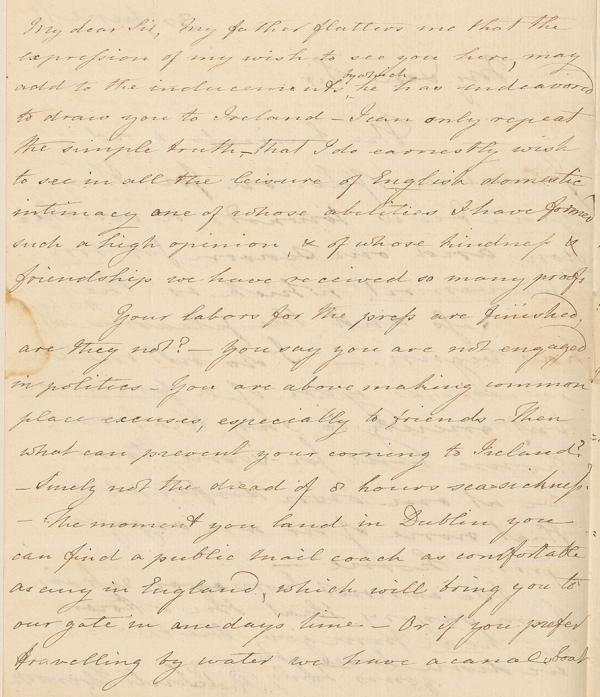 My dear Sir, My father flatters me that the
expression of my wish to see you here, may
add to the inducements by which he has endeavored
to draw you to Ireland – I can only repeat
the simple truth – that I do earnestly wish
to see in all the leisure of English domestic
intimacy one of whose abilities I have formed
such a high opinion, & of whose kindness &
friendship we have received so many proofs
Your labors for the press are finished,
are they not? – You say you are not engaged
in politics – You are above making common
place excuses, especially to friends – Then
what can prevent your coming to Ireland?
– Surely not the dread of 8 hours seasickness.
– The moment you land in Dublin you
can find a public mail coach as comfortable
as any in England, which will bring you to
our gate in one day's time – Or if you prefer
travelling by water we have a canal boat